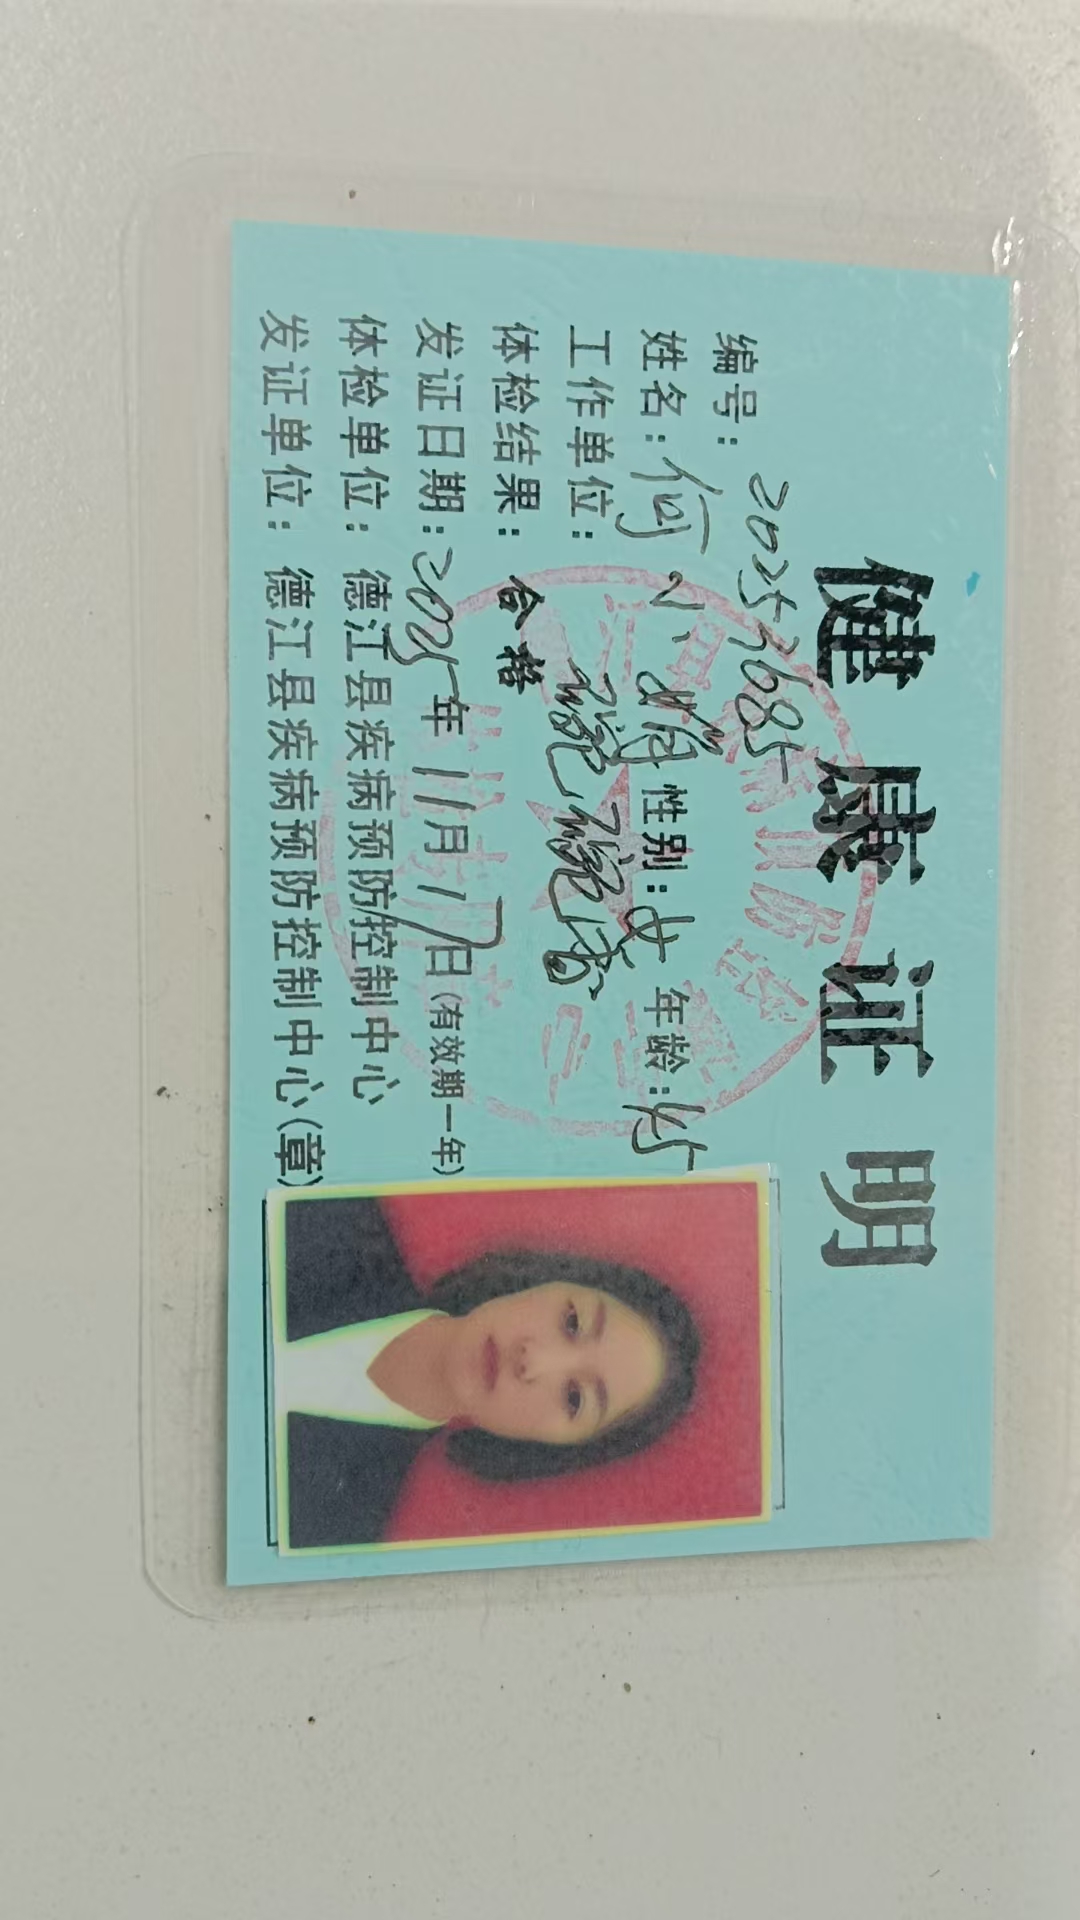 健康证明
编号: 20253685
姓名: 何小娟 性别: 女 年龄: 45
工作单位:
体检结果: 合格
发证日期: 2025年11月17日(有效期一年)
体检单位: 德江县疾病预防控制中心
发证单位: 德江县疾病预防控制中心(章)